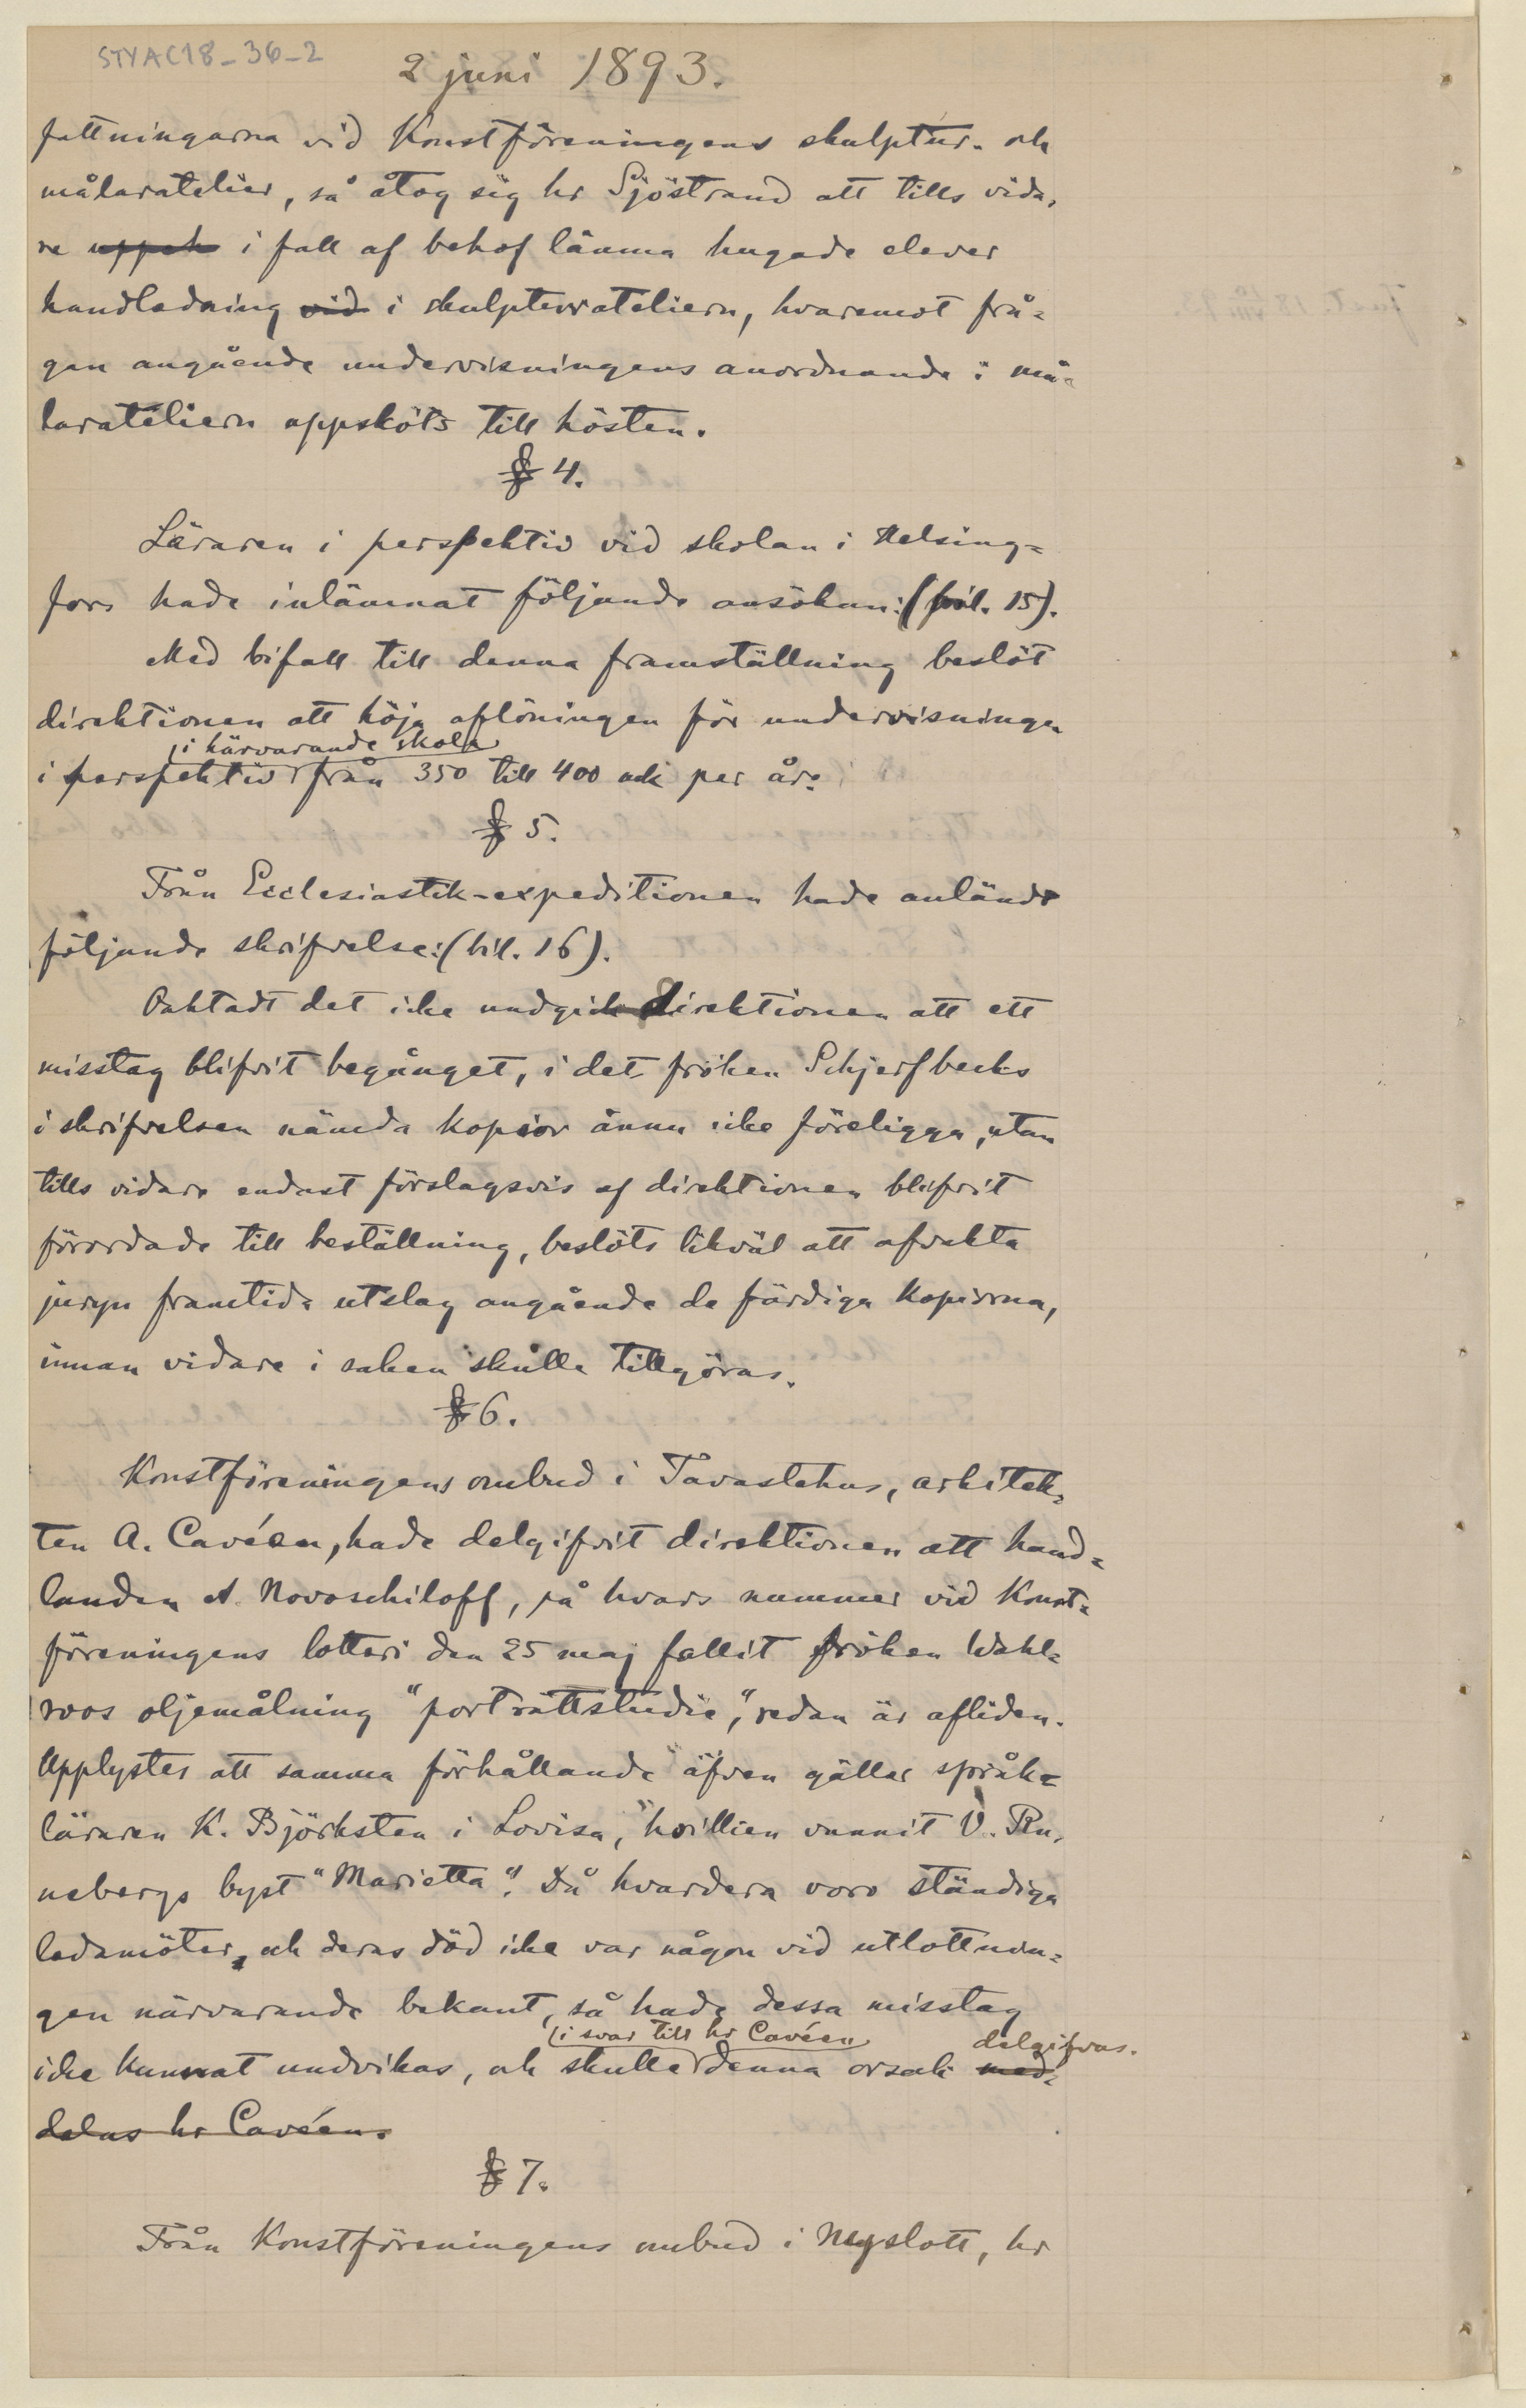 STYAC18_36_2
2 juni 1893.
fattningarna vid Konstföreningens skulptur- och
målaratelier, så åtog sig hr Sjöstrand att tills vida-
re uppeh i fall af behof lämna hugade elever
handledning vid i skulpturateliern, hvaremot frå-
gan angående undervisningens anordnande i må-
larateliern uppsköts till hösten.
§ 4.
Läraren i perspektiv vid skolan i Helsing-
fors hade inlämnat följande ansökan: (bil. 15).
Med bifall till denna framställning beslöt
direktionen att höja aflöningen för undervisningen
i härvarande skola
i perspektiv från 350 till 400 mk per år.
§ 5.
Från Ecclesiastik-expeditionen hade anländt
följande skrifvelse: (bil. 16).
Oaktadt det icke undgick direktionen att ett
misstag blifvit begånget, i det fröken Schjerfbecks
i skrifvelsen nämda kopior ännu icke föreligga, utan
tills vidare endast förslagsvis af direktionen blifvit
förordade till beställning, beslöts likväl att afvakta
juryn framtida utslag angående de färdiga kopiorna,
innan vidare i saken skulle tillgöras.
§ 6.
Konstföreningens ombud i Tavastehus, arkitek-
ten A. Cavéen, hade delgifvit direktionen att hand-
landen A. Novoschiloff, på hvars nummer vid Konst-
föreningens lotteri den 25 maj fallit fröken Wahl-
roos oljemålning "porträttstudie", redan är afliden.
Upplystes att samma förhållande äfven gäller språk-
läraren K. Björksten i Lovisa, hvilken vunnit V. Ru-
nebergs byst "Marietta". Då hvardera voro ständiga
ledamöter, och deras död icke var någon vid utlottnin-
gen närvarande bekant, så hade dessa misstag
i svar till hr Cavéen delgifvas.
icke kunnat undvikas, och skulle denna orsak med-
delas hr Cavéen.
§ 7.
Från Konstföreningens ombud i Nyslott, hr